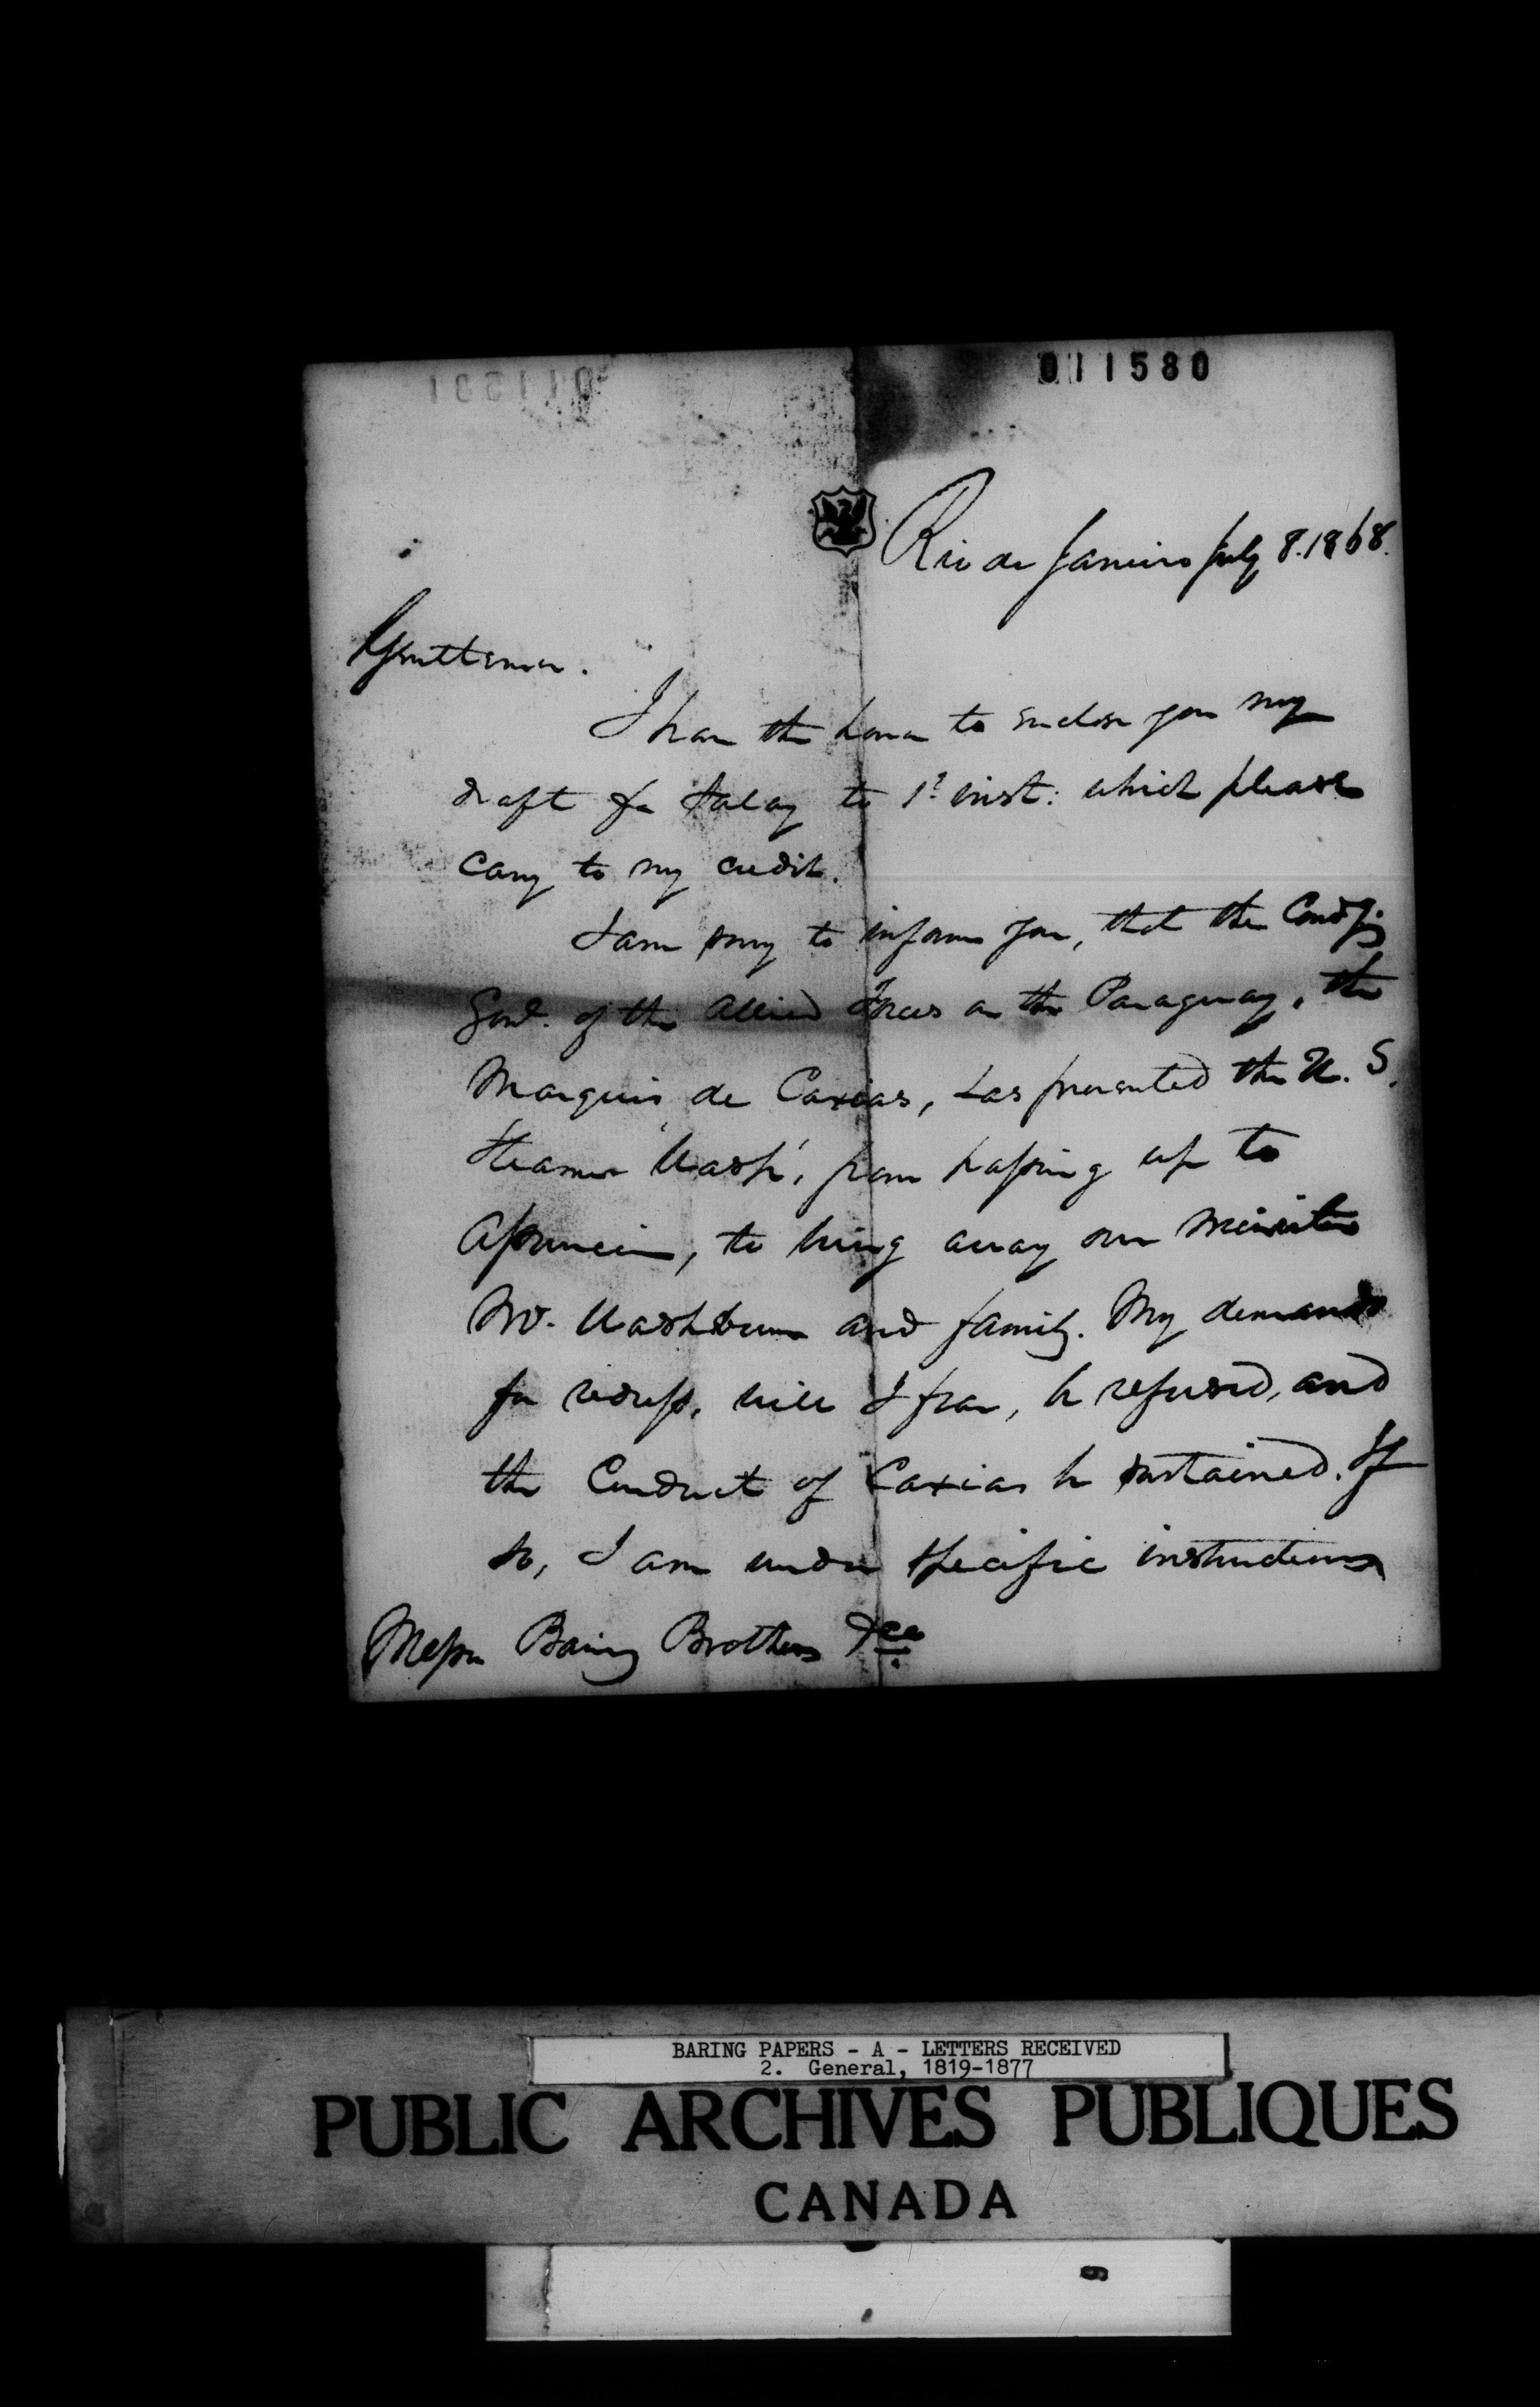 011580
Rio de Janeiro July 8. 1868.
Gentlemen.
I have the honor to enclose you my
draft for Salary to 1st inst: which please
carry to my credit.
I am sorry to inform you, that the Comdg
Genl. of the Allied Forces on the Paraguay, the
Marquis de Caxias, has prevented the U. S.
Steamer 'Wasp', from passing up to
Assuncion, to bring away our Minister
Mr. Washburn and family. My demands
for redress, will I fear, be refused, and
the Conduct of Caxias be sustained. If
so, I am under specific instructions
Messrs Baring Brothers & Co.
BARING PAPERS - A - LETTERS RECEIVED
2. General, 1819-1877
PUBLIC ARCHIVES PUBLIQUES
CANADA